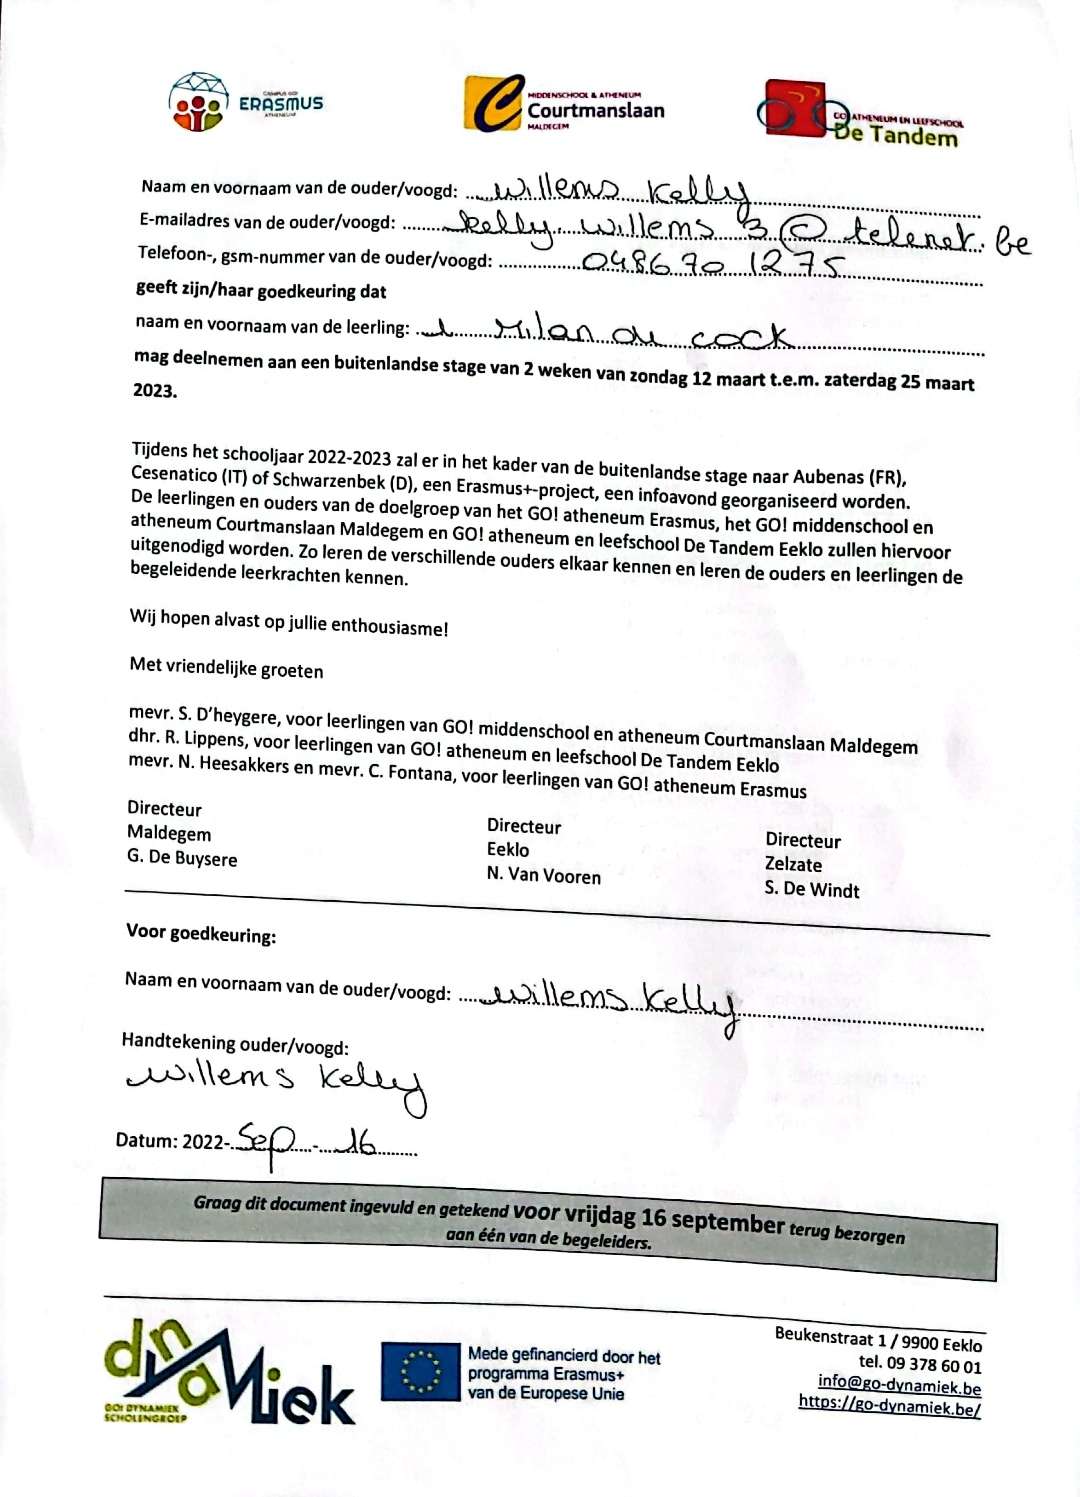 CAMPUS GO!
ERASMUS
ATHENEUM
MIDDENSCHOOL & ATHENEUM
Courtmanslaan
MALDEGEM
GO! ATHENEUM EN LEEFSCHOOL
De Tandem
Naam en voornaam van de ouder/voogd: Willems Kelly
E-mailadres van de ouder/voogd: kelly.willems3@telenet.be
Telefoon-, gsm-nummer van de ouder/voogd: 0486701275
geeft zijn/haar goedkeuring dat
naam en voornaam van de leerling: Milan de cock
mag deelnemen aan een buitenlandse stage van 2 weken van zondag 12 maart t.e.m. zaterdag 25 maart
2023.
Tijdens het schooljaar 2022-2023 zal er in het kader van de buitenlandse stage naar Aubenas (FR),
Cesenatico (IT) of Schwarzenbek (D), een Erasmus+-project, een infoavond georganiseerd worden.
De leerlingen en ouders van de doelgroep van het GO! atheneum Erasmus, het GO! middenschool en
atheneum Courtmanslaan Maldegem en GO! atheneum en leefschool De Tandem Eeklo zullen hiervoor
uitgenodigd worden. Zo leren de verschillende ouders elkaar kennen en leren de ouders en leerlingen de
begeleidende leerkrachten kennen.
Wij hopen alvast op jullie enthousiasme!
Met vriendelijke groeten
mevr. S. D'heygere, voor leerlingen van GO! middenschool en atheneum Courtmanslaan Maldegem
dhr. R. Lippens, voor leerlingen van GO! atheneum en leefschool De Tandem Eeklo
mevr. N. Heesakkers en mevr. C. Fontana, voor leerlingen van GO! atheneum Erasmus
Directeur
Maldegem
G. De Buysere
Directeur
Eeklo
N. Van Vooren
Directeur
Zelzate
S. De Windt
Voor goedkeuring:
Naam en voornaam van de ouder/voogd: Willems Kelly
Handtekening ouder/voogd:
Willems Kelly
Datum: 2022-Sep-16
Graag dit document ingevuld en getekend voor vrijdag 16 september terug bezorgen
aan één van de begeleiders.
dynamiek
GO! DYNAMIEK
SCHOLENGROEP
Mede gefinancierd door het
programma Erasmus+
van de Europese Unie
Beukenstraat 1 / 9900 Eeklo
tel. 09 378 60 01
info@go-dynamiek.be
https://go-dynamiek.be/